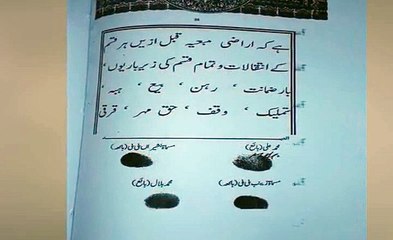 ہے کہ اراضی مبیعہ قبل ازیں ہر قسم
کے انتقالات و تمام قسم کی زیر باریوں،
بار ضمانت، رہن، بیع، ہبہ،
تملیک، وقف، حق مہر، قرقی
العبد
محمد علی (بائع) مسماۃ بی بی (بائعہ)
محمد بلال (بائع) مسماۃ زینب بی بی (بائعہ)